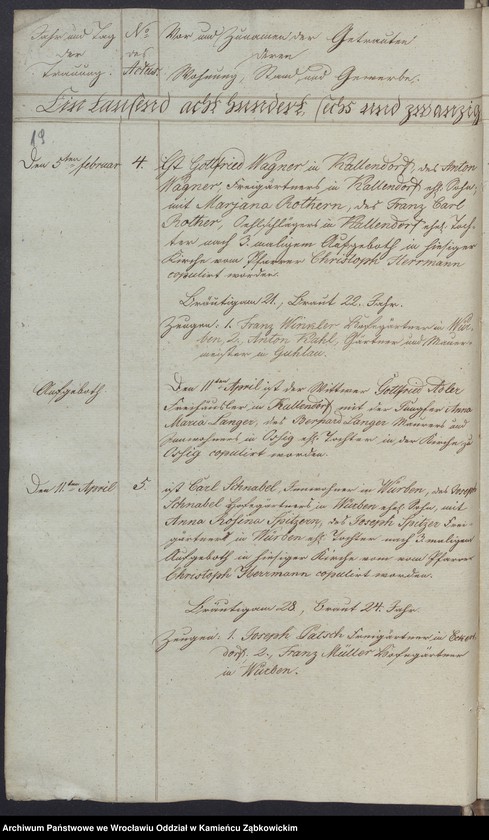 Jahr und Tag der Trauung.
No des Actus.
Vor und Zunamen der Getrauten
deren
Wohnung, Stand, und Gewerbe.
Ein tausend acht hundert, sechs und zwanzig
19
Den 5ten februar 4. Ist Gottfried Wagner in Kallendorf, des Anton
Wagner, Freigärtners in Kallendorf ehl. Sohn,
mit Marjana Rothern, des Franz Carl
Rother, Oehlschlägers in Kallendorf ehel. Toch-
ter nach 3 maligem Aufgeboth in hiesiger
Kirche vom Pfarrer Christoph Herrmann
copulirt worden.
Bräutigam 21., Braut 22. Jahr.
Zeugen: 1. Franz Winkler Hofegärtner in Wür-
ben, 2, Anton Kuhl, Gärtner und Mauer-
meister in Guhlau.
Aufgeboth
Den 11ten April ist der Wittwer Gottfried Adler
Freihäusler in Kallendorf mit der Jungfer Anna
Maria Langer, des Bernhard Langer Maurers und
Innwohners in Ossig ehl. Tochter in der Kirche zu
Ossig copulirt worden.
Den 11ten April 5. ist Carl Schnabel, Innwohner in Würben, des Joseph
Schnabel Hofegärtners in Würben ehel. Sohn, mit
Anna Rosina Spitzern, des Joseph Spitzer Frei-
gärtners in Würben ehl. Tochter nach 3 maligem
Aufgeboth in hiesiger Kirche vom vom Pfarrer
Christoph Herrmann copulirt worden.
Bräutigam 28, Braut 24. Jahr
Zeugen: 1. Joseph Patsch Freigärtner in
dorf. 2., Franz Müller Hofegärtner
in Würben.
Archiwum Państwowe we Wrocławiu Oddział w Kamieńcu Ząbkowickim